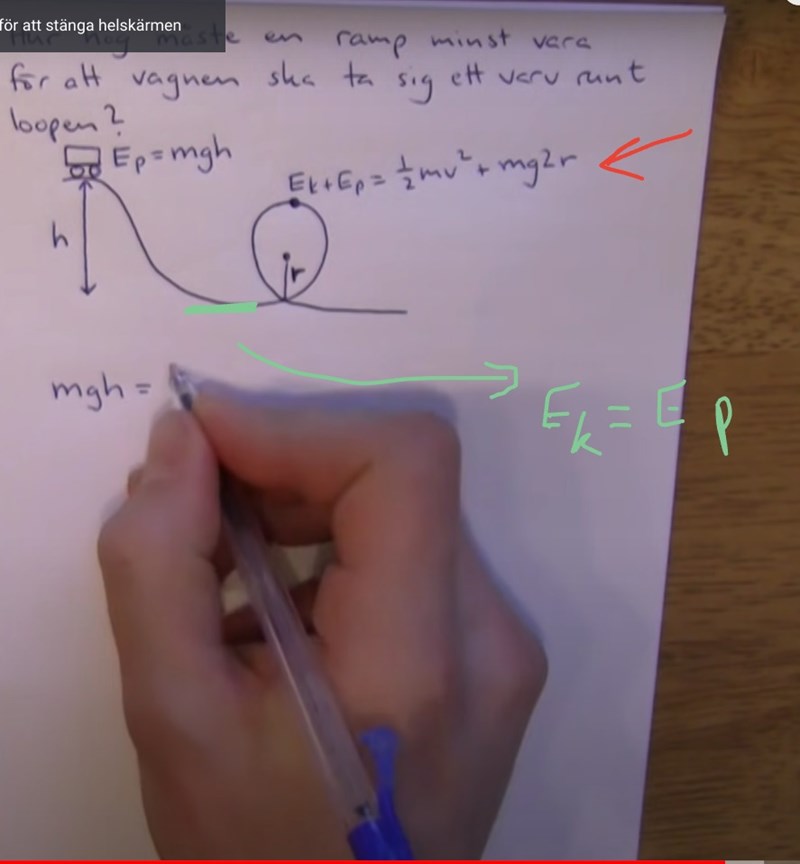 för att stänga helskärmen
Hur hög måste en ramp minst vara
för att vagnen ska ta sig ett varv runt
loopen?
Ep = mgh
Ek+Ep = 1/2 mv² + mg2r
h
r
mgh =
Ek = Ep